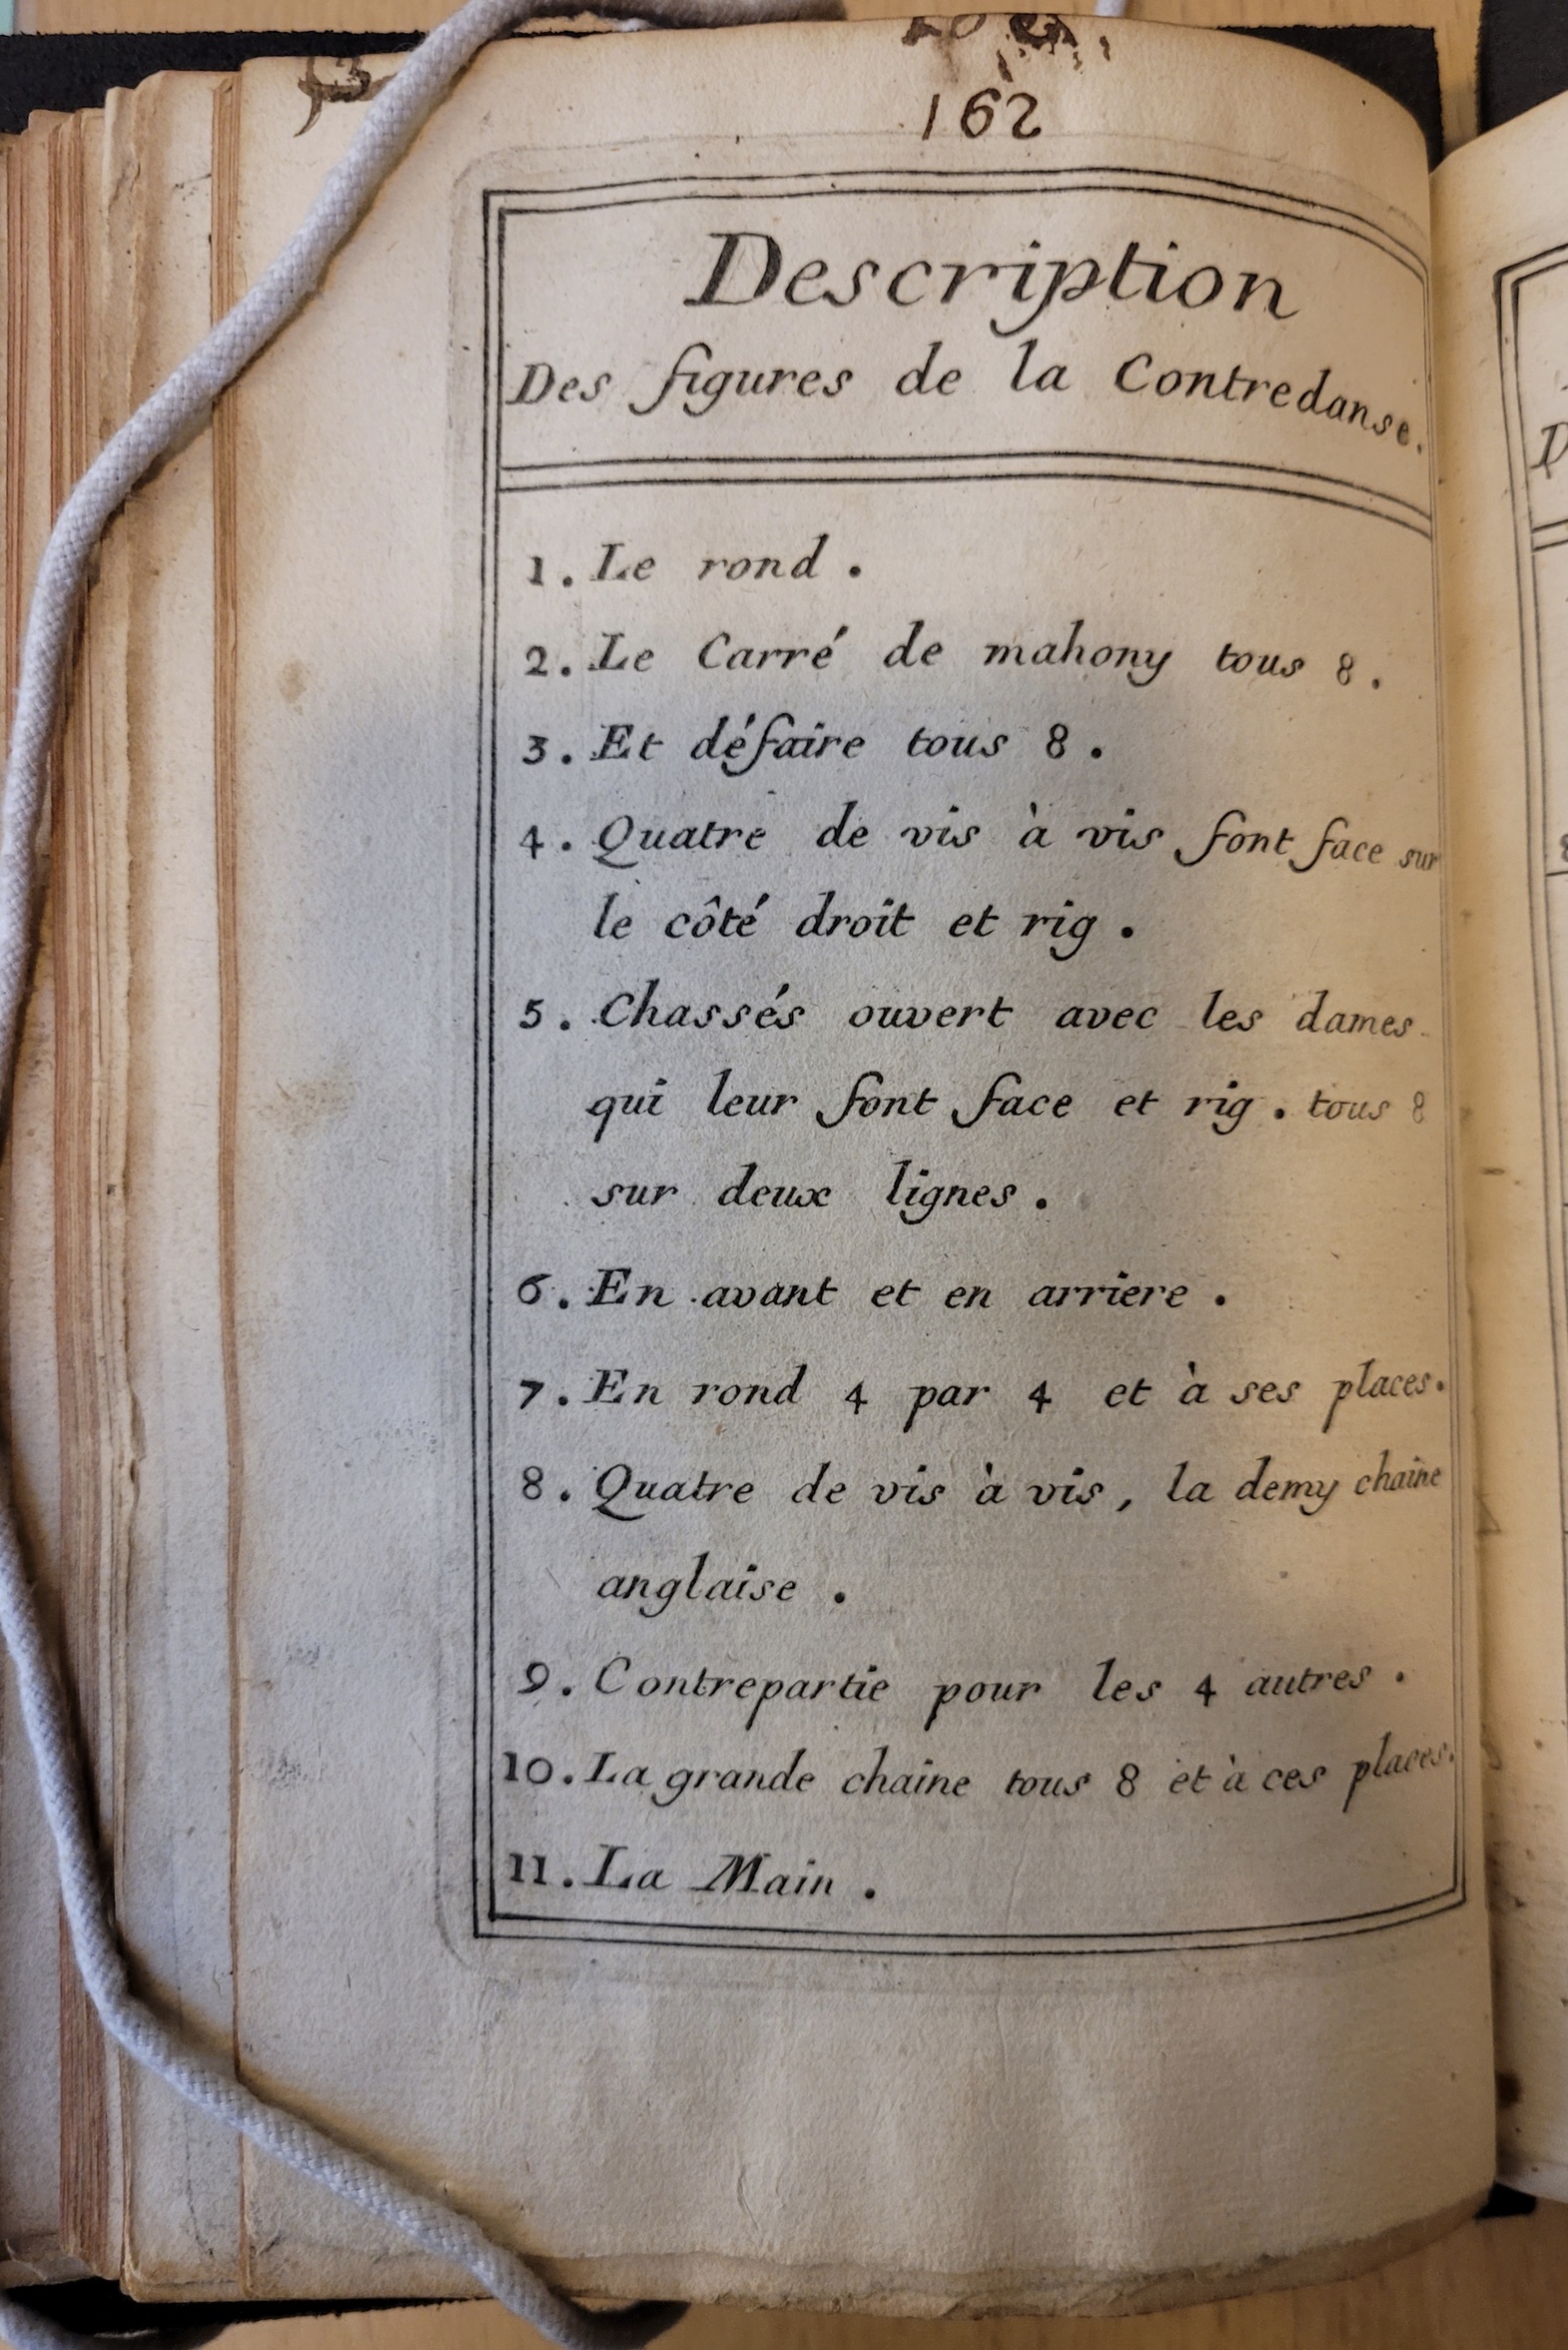 162
Description
Des figures de la Contredanse.
1. Le rond.
2. Le Carré de mahony tous 8.
3. Et défaire tous 8.
4. Quatre de vis à vis font face sur
le côté droit et rig.
5. Chassés ouvert avec les dames
qui leur font face et rig. tous 8
sur deux lignes.
6. En avant et en arriere.
7. En rond 4 par 4 et à ses places.
8. Quatre de vis à vis, la demy chaine
anglaise.
9. Contrepartie pour les 4 autres.
10. La grande chaine tous 8 et à ces places.
11. La Main.